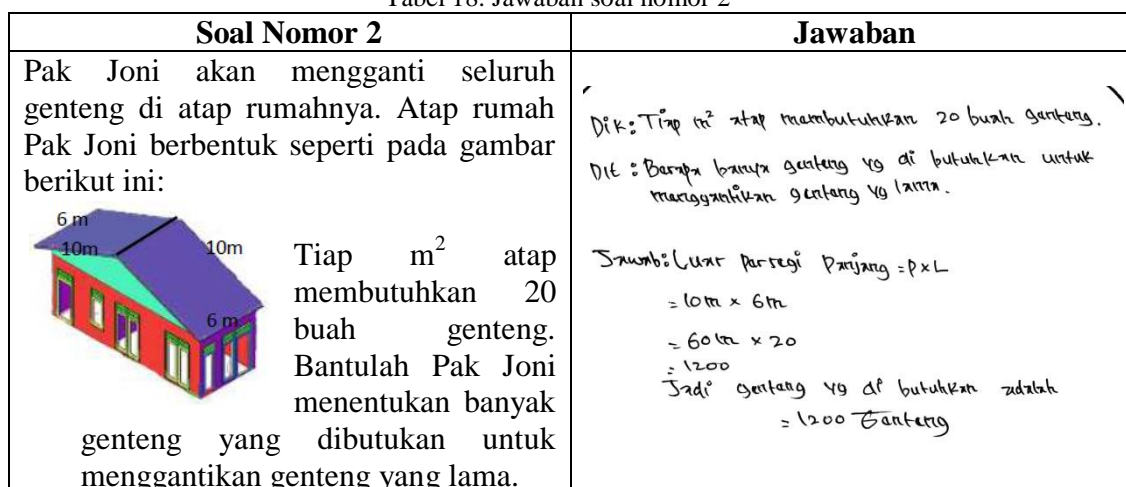 Tabel 18. Jawaban soal nomor 2
Soal Nomor 2
Pak Joni akan mengganti seluruh
genteng di atap rumahnya. Atap rumah
Pak Joni berbentuk seperti pada gambar
berikut ini:
6 m
10m
10m
6 m
Tiap m² atap
membutuhkan 20
buah genteng.
Bantulah Pak Joni
menentukan banyak
genteng yang dibutukan untuk
menggantikan genteng yang lama.
Jawaban
Dik: Tiap m² atap membutuhkan 20 buah genteng.
Dit: Berapa banya genteng yg di butuhkan untuk
menggantikan genteng yg lama.
Jawab: Luar persegi Panjang = P x L
= 10 m x 6 m
= 60 m x 20
= 1200
Jadi genteng yg di butuhkan adalah
= 1200 Genteng